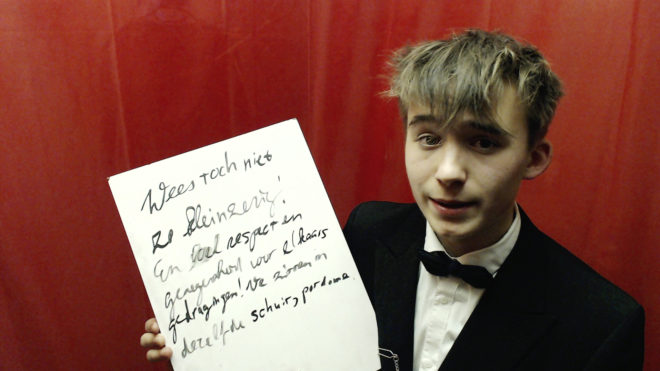 Wees toch niet
zo kleinzerig!
En toel respect en
genegenheid voor elkaars
gedragingen! We zitten in
dezelfde schuit, pardoma.